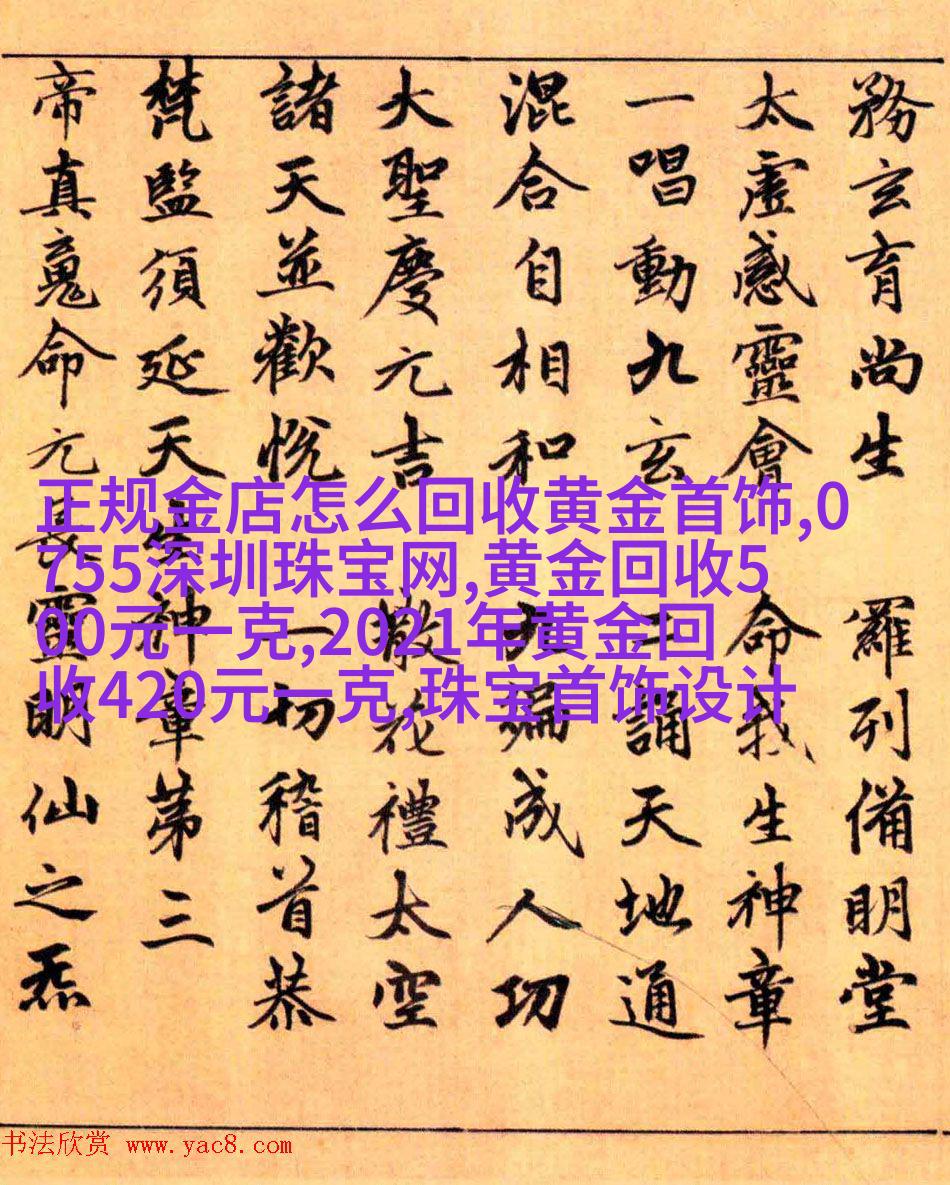 務玄育尚生 羅列備明堂
太虛感靈會 命我生神章
一唱動九玄 二誦天地通
混合自相和 九遍成人功
大聖慶元吉 散花禮太空
諸天並歡悅 一切稽首恭
梵監須延天生神章第三
帝真魂命元長靈明仙之炁
正规金店怎么回收黄金首饰,0
755深圳珠宝网,黄金回收5
00元一克,2021年黄金回
收420元一克,珠宝首饰设计
书法欣赏 www.yac8.com